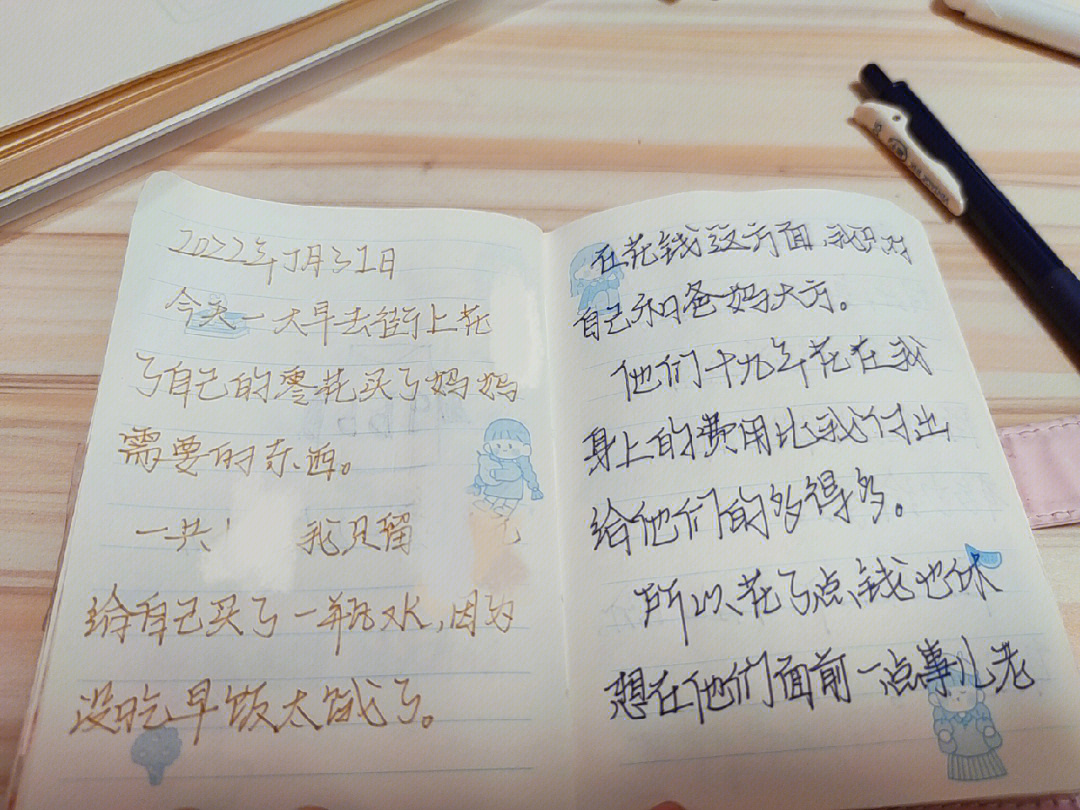 2022年1月31日
今天一大早去街上花
了自己的零花买了妈妈
需要的东西。
一共 我只留
给自己买了一瓶水,因为
没吃早饭太饿了。
在花钱这方面,我只对
自己和爸妈大方。
他们十九年花在我
身上的费用比我付出
给他们的多得多。
所以花了点钱也休
想在他们面前一点事儿老